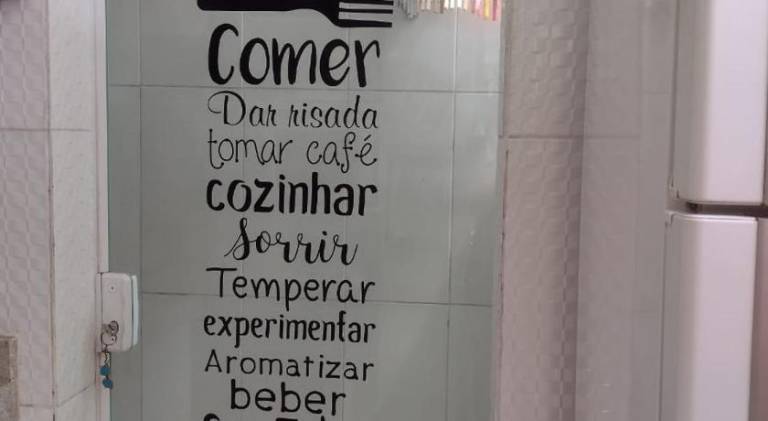 Comer
Dar risada
tomar café
cozinhar
Sorrir
Temperar
experimentar
Aromatizar
beber